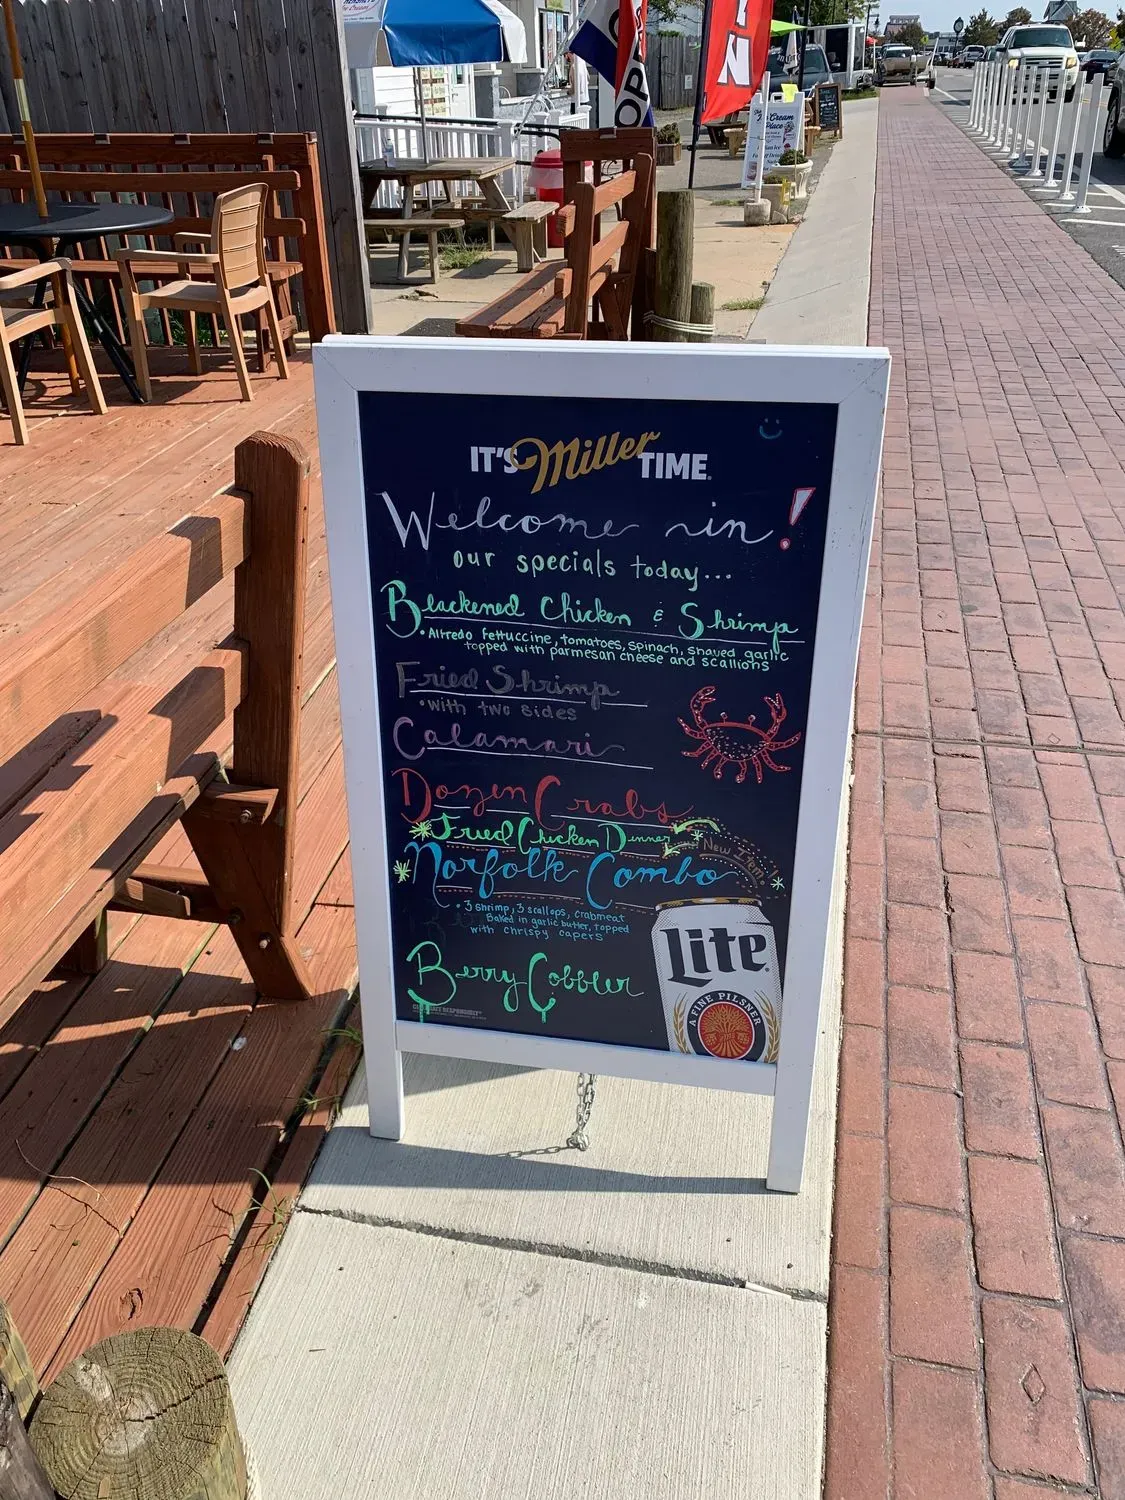 OPEN
Ice Cream
Place
IT'S Miller TIME
Welcome in!
our specials today...
Blackened Chicken & Shrimp
• Alfredo fettuccine, tomatoes, spinach, shaved garlic
topped with parmesan cheese and scallions
Fried Shrimp
• with two sides
Calamari
Dozen Crabs
Fried Chicken Dinner
New Item!
Norfolk Combo
• 3 shrimp, 3 scallops, crabmeat
Baked in garlic butter, topped
with chrispy capers
Berry Cobbler
Lite
A FINE PILSNER